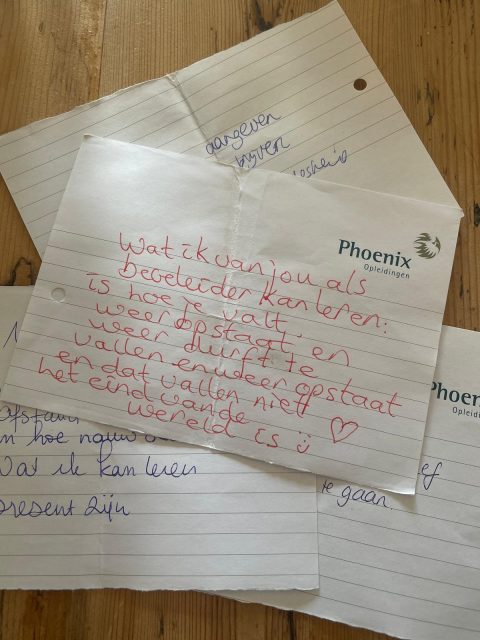 aangeven
blijven
Phoenix
Opleidingen
Wat ik van jou als
begeleider kan leren:
is hoe je valt,
weer opstaat, en
weer durft te
vallen en weer opstaat
en dat vallen niet
het eind van de
wereld is
Phoenix
Opleid
en hoe nauw
Wat ik kan leren
present zijn
ef
te gaan.